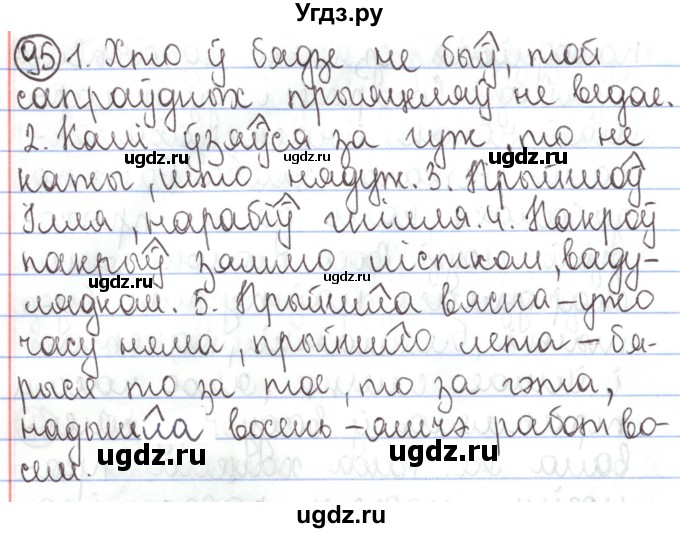 Угдз.ру
95 1. Хто ў бядзе не быў, той
сапраўдных прыяцеляў не ведае.
ugdz.ru ugdz.ru
2. Калі ўзяўся за гуж, то не
ugdz.ru
кажы, што нядуж. 3. Прыйшоў
Ілля, нарабіў гнілля. 4. Пакроў
ugdz.ru
пакрыў зямлю лістком, ваду -
лядком. 5. Прыйшла вясна - ужо
часу няма, прыйшло лета - бя-
рыся то за тое, то за гэта,
надышла восень - яшчэ работ во-
ugdz.ru ugdz.ru
сем.
ugdz.ru